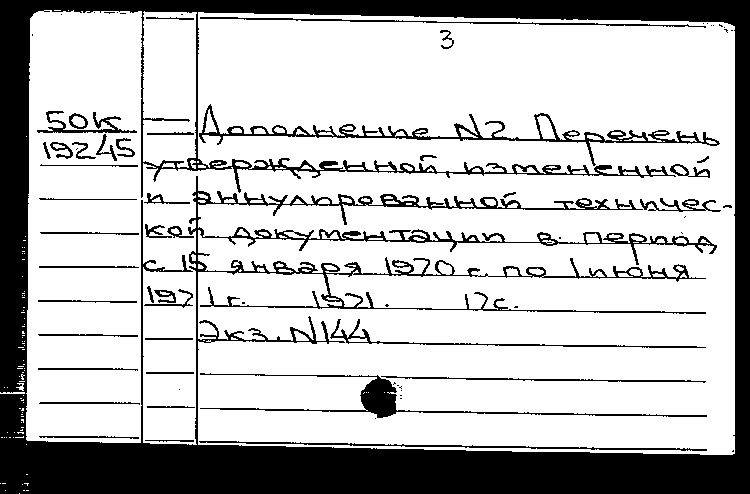 3
50К
19245
— Дополнение N2. Перечень
утвержденной, измененной
и аннулированной техничес-
кой документации в период
с 15 января 1970 г. по 1 июня
1971 г. 1971. 17с.
Экз. N144